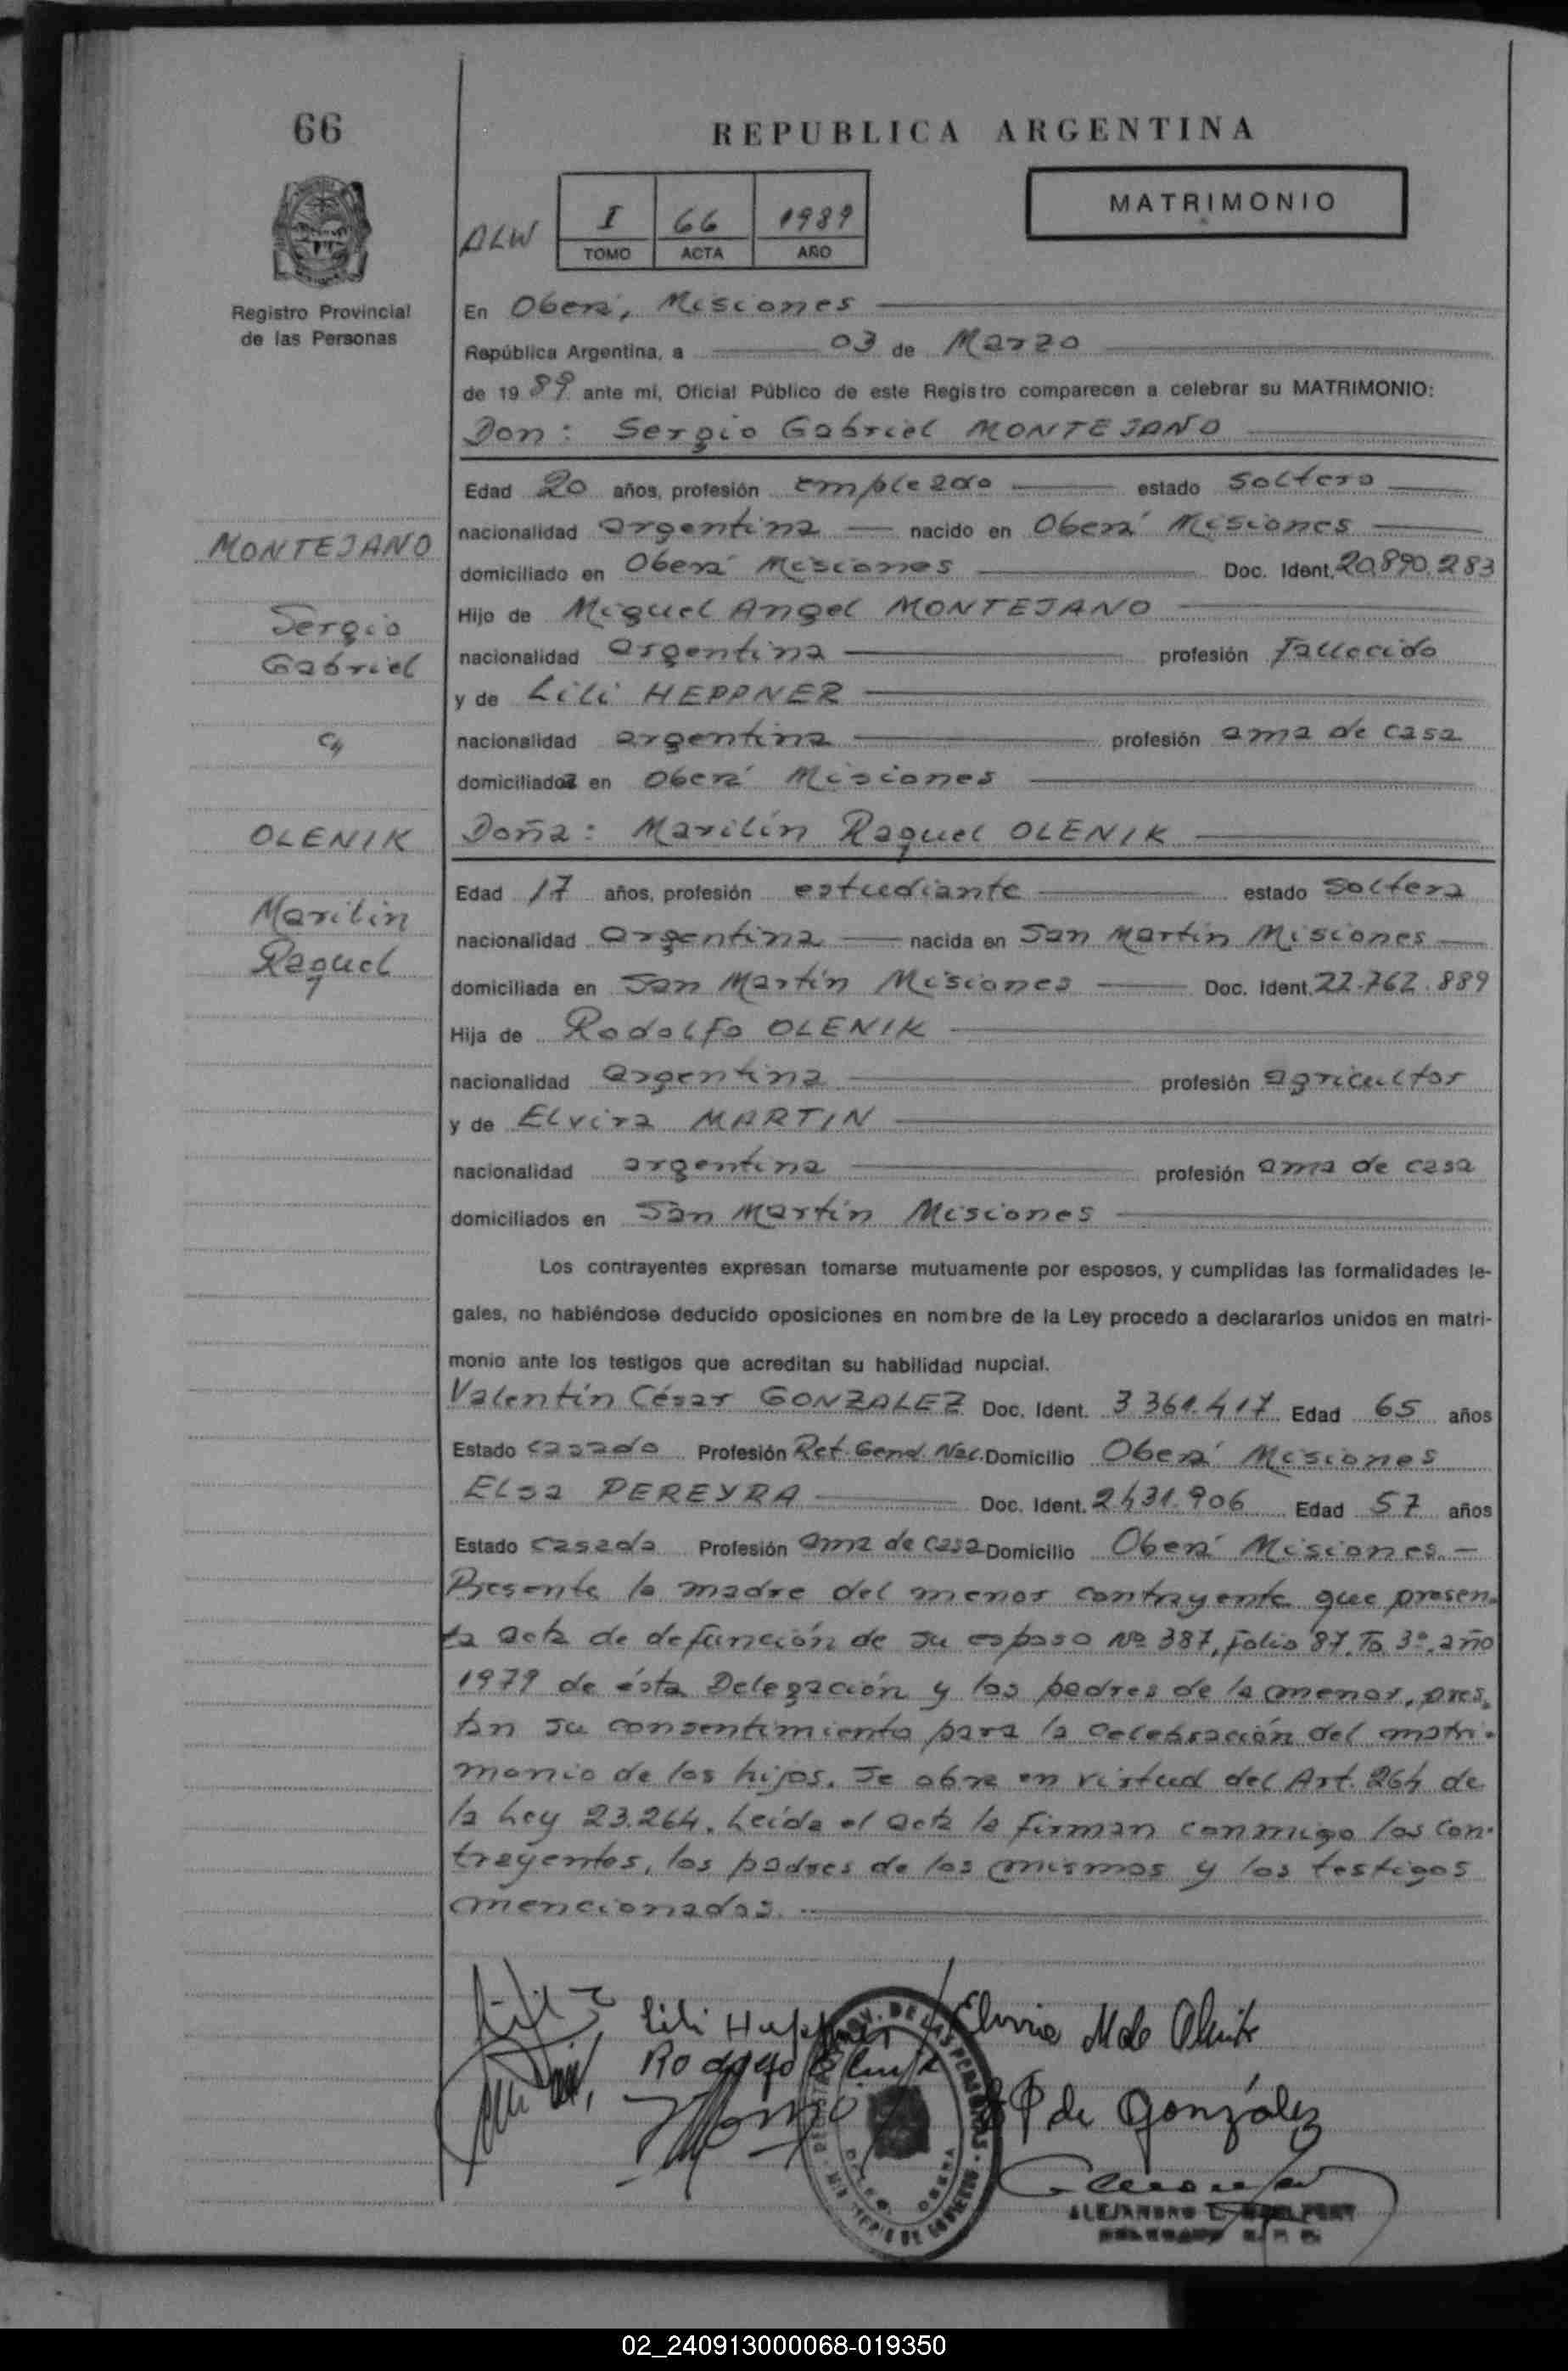 66
REPUBLICA ARGENTINA
MATRIMONIO
ALW
I 66 1989
TOMO ACTA AÑO
Registro Provincial
de las Personas
En Oberá, Misiones
República Argentina, a 03 de Marzo
de 1989 ante mi, Oficial Público de este Registro comparecen a celebrar su MATRIMONIO:
Don: Sergio Gabriel MONTEJANO
Edad 20 años, profesión empleado estado soltero
nacionalidad argentina nacido en Oberá Misiones
MONTEJANO
domiciliado en Oberá Misiones Doc. Ident. 20.890.283
Hijo de Miguel Angel MONTEJANO
Sergio
Gabriel
nacionalidad argentina profesión fallecido
y de Lili HEPPNER
c/
nacionalidad argentina profesión ama de casa
domiciliada en Oberá Misiones
OLENIK
Doña: Marilín Raquel OLENIK
Edad 17 años, profesión estudiante estado soltera
Marilin
Raquel
nacionalidad argentina nacida en San Martín Misiones
domiciliada en San Martín Misiones Doc. Ident. 22.762.889
Hija de Rodolfo OLENIK
nacionalidad argentina profesión agricultor
y de Elvira MARTIN
nacionalidad argentina profesión ama de casa
domiciliados en San Martín Misiones
Los contrayentes expresan tomarse mutuamente por esposos, y cumplidas las formalidades le-
gales, no habiéndose deducido oposiciones en nombre de la Ley procedo a declararlos unidos en matri-
monio ante los testigos que acreditan su habilidad nupcial.
Valentín César GONZALEZ Doc. Ident. 3.361.417 Edad 65 años
Estado casado Profesión Ret. Gend. Nac. Domicilio Oberá Misiones
Elsa PEREYRA Doc. Ident. 2431.906 Edad 57 años
Estado casada Profesión ama de casa Domicilio Oberá Misiones.-
Presente la madre del menor contrayente que presen-
ta acta de defunción de su esposo Nº 387, folio 87, To. 3º, año
1979 de ésta Delegación y los padres de la menor, pres-
tan su consentimiento para la celebración del matri-
monio de los hijos. Se obra en virtud del Art. 264 de
la Ley 23.264. Leída el acta la firman conmigo los con-
trayentes, los padres de los mismos y los testigos
mencionados.
Lili Heppner
Elvira M de Olenik
Rodolfo Olenik
EP de González
ALEJANDRO
02_240913000068-019350